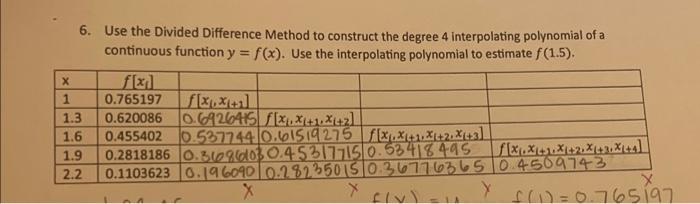 6. Use the Divided Difference Method to construct the degree 4 interpolating polynomial of a
continuous function y = f(x). Use the interpolating polynomial to estimate f(1.5).
x f[xᵢ]
1 0.765197 f[xᵢ, xᵢ₊₁]
1.3 0.620086 0.6926415 f[xᵢ, xᵢ₊₁, xᵢ₊₂]
1.6 0.455402 0.537744 0.61519275 f[xᵢ, xᵢ₊₁, xᵢ₊₂, xᵢ₊₃]
1.9 0.2818186 0.45317715 0.53418495 f[xᵢ, xᵢ₊₁, xᵢ₊₂, xᵢ₊₃, xᵢ₊₄]
2.2 0.1103623 0.196090 0.28235015 0.36776365 0.4509743
x x x x
f(1) = 0.765197